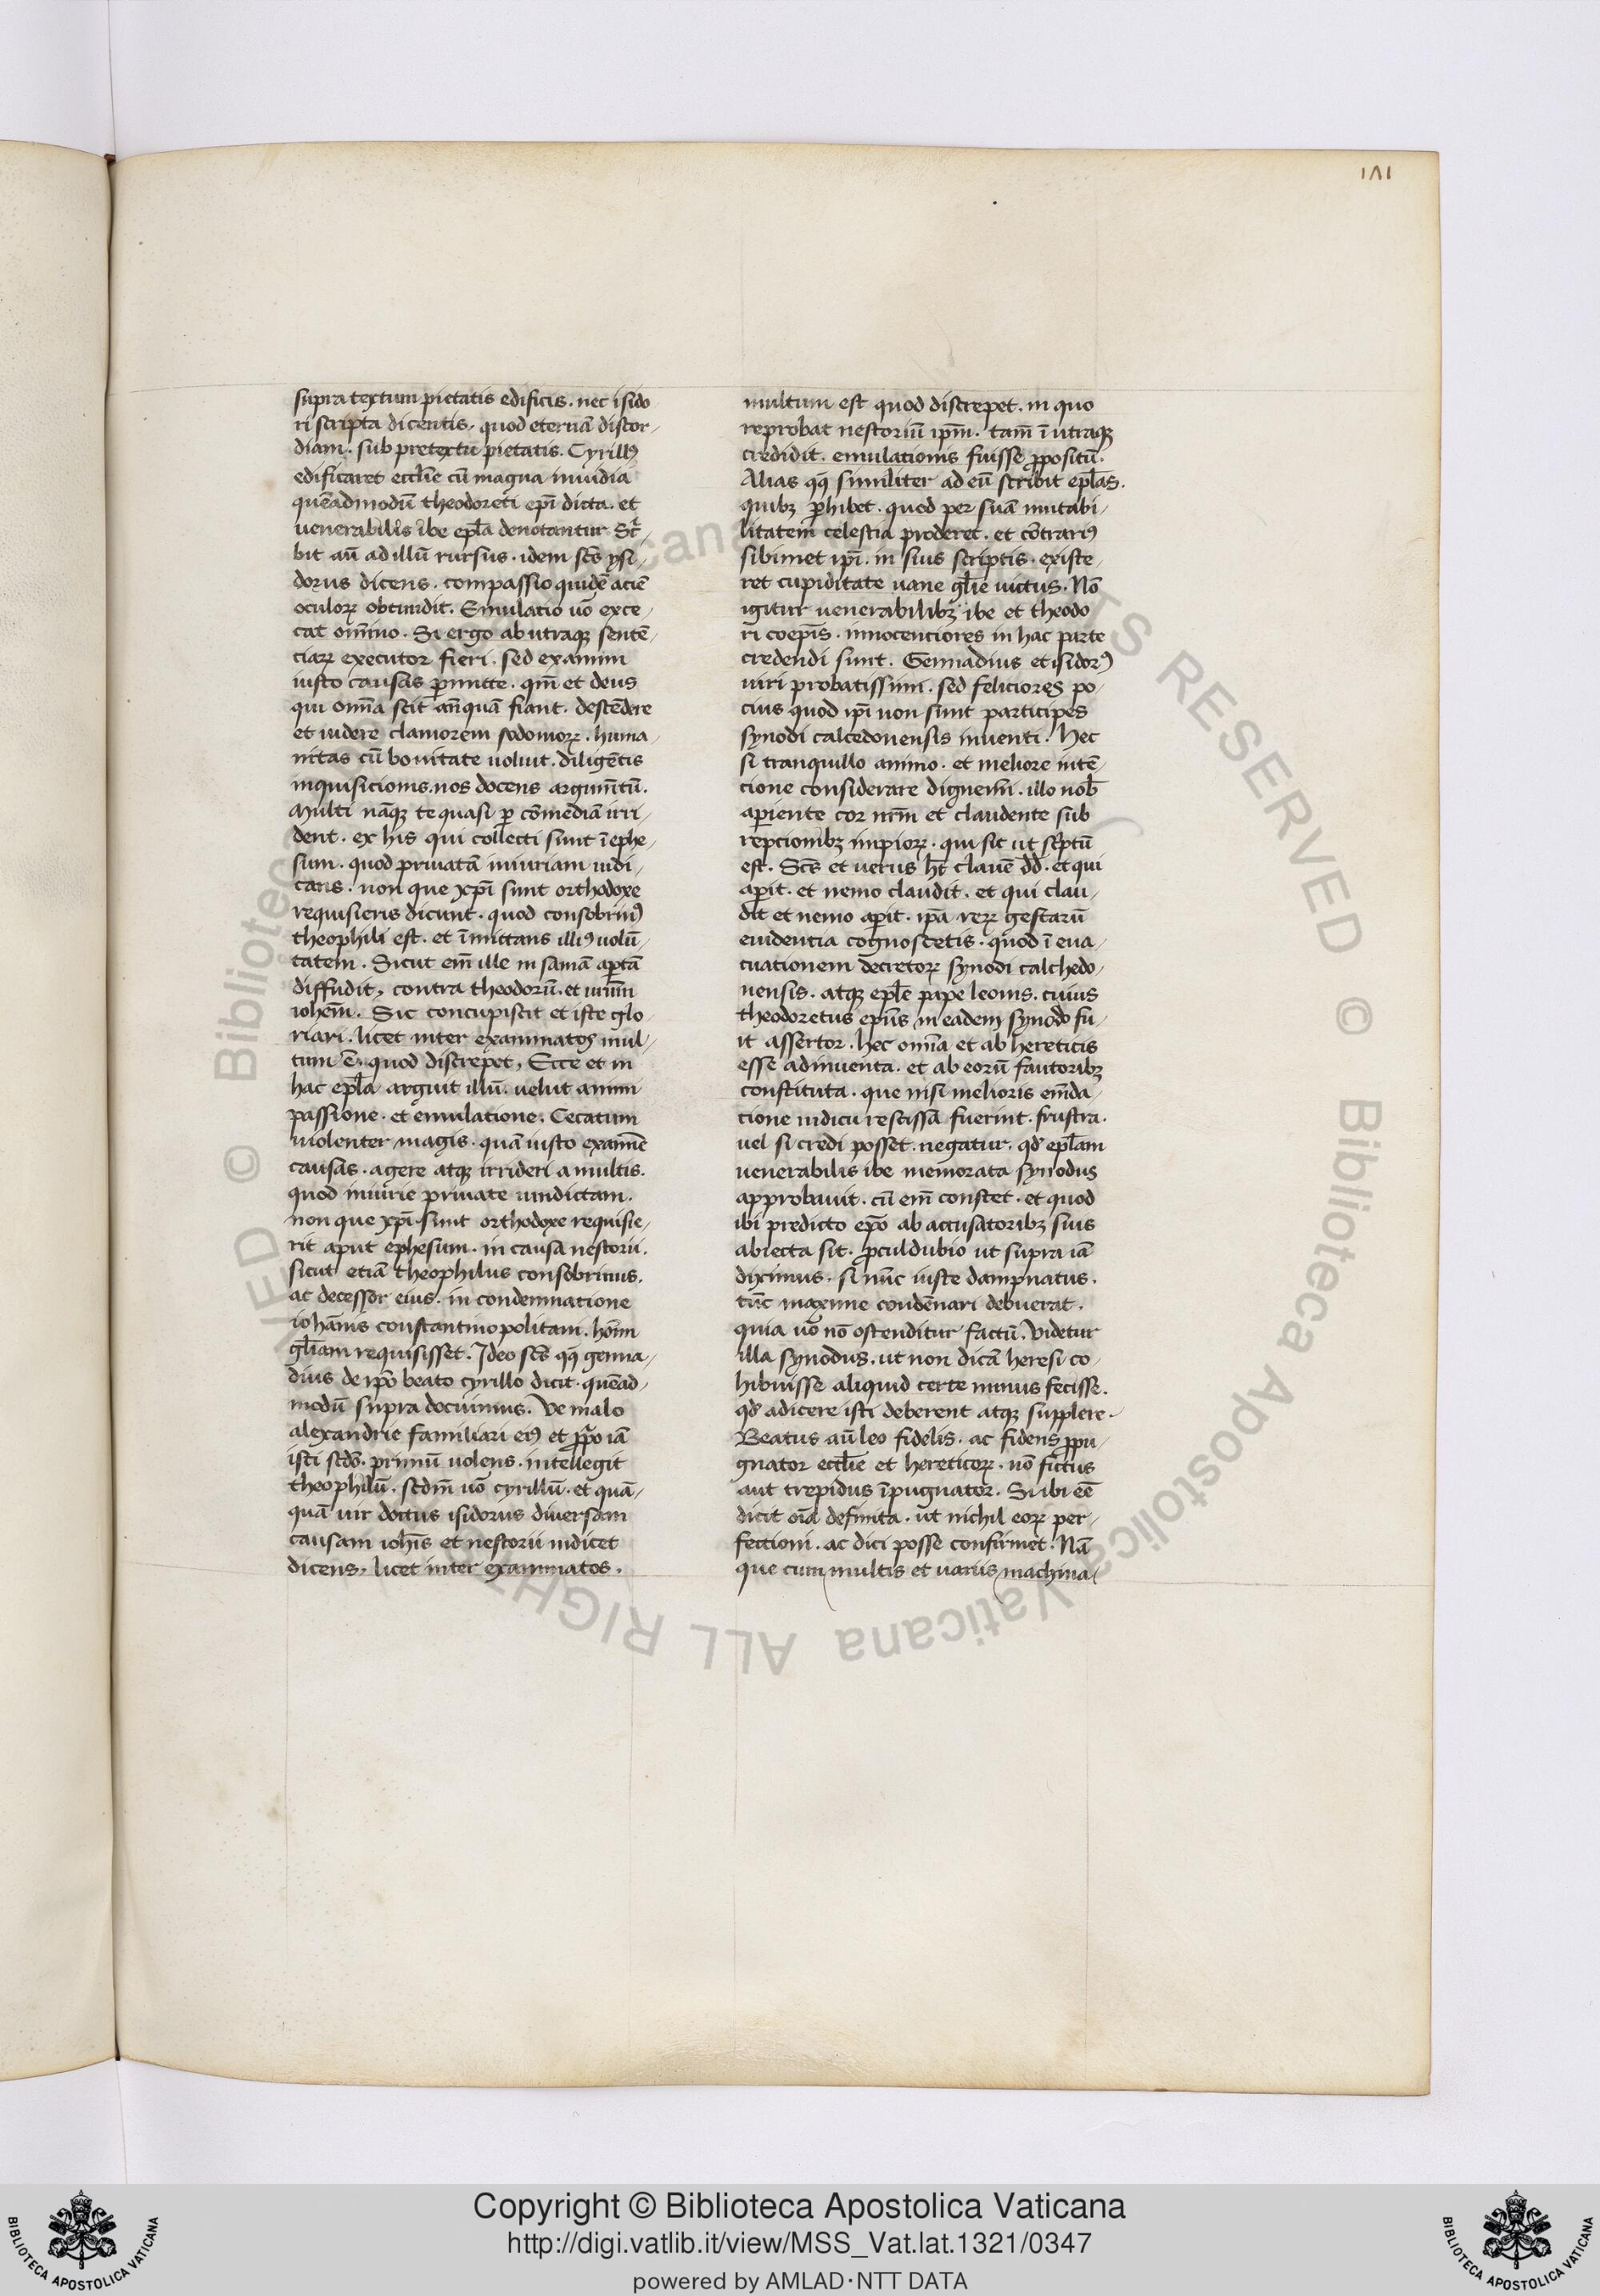 181
supra textum pietatis edificis. nec isido
ri scripta dicentis. quod eternā discor-
diam. sub pretextu pietatis. Cyrillꝰ
edificaret eccl̄ie cū magna inuidia
quēadmodū theodoreti ep̄i dicta. et
uenerabilis ibe ep̄la denotantur Scͥ-
bit aū ad illū rursus. idem sc̄s ysi-
dorus dicens. compassio quidē aciē
oculoꝝ obtundit. Emulatio uō exce-
cat om̄ino. Si ergo ab utraqꝫ sentē-
ciaꝝ executor fieri. sed examini
iusto causas ꝑmitte. qm̄ et deus
qui om̄ia scit an̄quā fiant. descēdere
et uidere clamorem sodomoꝝ. huma-
nitas cū bonitate uoluit. diligētis
inquisicionis. nos docens argum̄tū.
Multi nāqꝫ te quasi ꝑ cōmediā irri-
dent. ex his qui collecti sunt ī ephe-
sum. quod priuatā iniuriam uidi-
cans. non que xp̄i sunt orthodoxe
requisieris dicunt. quod consobrinꝰ
theophili est. et īmittans illiꝰ uolū-
tatem. Sicut em̄ ille in samā aꝑtā
diffudit, contra theodorū. et uirum̄
ioh̄em. Sic concupiscit et iste glo-
riari. licet inter examinatos mul-
tum ē. quod discrepet, Ecce et in
hac ep̄la arguit illū. uelut animi
passione. et emulatione. Cecatum
uiolenter magis. quā iusto examīe
causas. agere atqꝫ irrideri a multis.
quod iniurie priuate uindictam.
non que xp̄i sunt orthodoxe requisie-
rit aput ephesum. in causa nestorii.
sicut etiā theophilus consobrinus.
ac decessor eius. in condemnatione
iohānis constantinopolitani. hōim
gl̄iam requisisset. Ideo sc̄s qꝗ genna-
dius de ip̄o beato cyrillo dicit. quēad-
modū supra docuimus. Ve malo
alexandrie familiari eiꝰ et ꝓpͦo iā
isti scd̄o. primū uolens. intellegit
theophilū. scd̄m uō cyrillū. et quā-
quā uir doctus isidorus diuersam
causam ioh̄is et nestorii iudicet
dicens, licet inter examinatos.
multum est quod discrepet. in quo
reprobat nestoriū ip̄m. tam̄ ī utraqꝫ
credidit. emulationis fuisse ꝓpositū.
Alias qꝗ similiter ad eū scribit ep̄las.
quibꝫ ꝓhibet. quod per suā mutabi-
litatem celestia proderet. et cōtrariꝰ
sibimet ip̄i. in suis scriptis. existe-
ret cupiditate uane gl̄ie uictus. Nō
igitur uenerabilibꝫ ibe et theodo
ri coep̄is. innocentiores in hac parte
credendi sunt. Gennadius et isidorꝰ
uiri probatissimi. sed feliciores po-
cius quod ip̄i non sunt participes
synodi calcedonensis inuenti. Hec
si tranquillo animo. et meliore intē-
cione considerare dignem̄. illo nob̄
aperiente cor nr̄m et claudente sub
repcionibꝫ impioꝝ. qui sic ut sc̄ptū
est. Sc̄s et uerus h̄t clauē dd̄. et qui
aꝑit. et nemo claudit. et qui clau-
dit et nemo aꝑit. ip̄a reꝝ gestarū
euidentia cognoscetis. quod ī eua-
cuationem decretoꝝ synodi calchedo-
nensis. atqꝫ ep̄le pape leonis. cuius
theodoretus ep̄us in eadem synodo fu-
it assertor. hec om̄ia et ab hereticis
esse adinuenta. et ab eorū fautoribꝫ
constituta. que nisi melioris em̄da-
tione iudicii rescissa fuerint. frustra.
uel si credi posset. negatur. qd̵ ep̄lam
uenerabilis ibe memorata synodus
approbauit. cū em̄ constet. et quod
ibi predicto ep̄o ab accusatoribꝫ suis
abiecta sit. ꝓculdubio ut supra iā
diximus. si nūc iuste dampnatus.
tūc maxime condēnari debuerat.
quia uō nō ostenditur factū. Videtur
illa synodus. ut non dicā heresi co-
hibuisse aliquid certe minus fecisse.
qd̵ adicere isti deberent atqꝫ supplere.
Beatus aū leo fidelis. ac fidens ꝓpu-
gnator eccl̄ie et hereticoꝝ. nō fictus
aut trepidus īpugnator. Si ibi eē
dicit oīa definita. ut nichil eoꝝ per-
fectioni. ac dici posse confirmet. Nā
que cum multis et uariis machina
Copyright © Biblioteca Apostolica Vaticana
http://digi.vatlib.it/view/MSS_Vat.lat.1321/0347
powered by AMLAD·NTT DATA
BIBLIOTECA APOSTOLICA VATICANA
BIBLIOTECA APOSTOLICA VATICANA